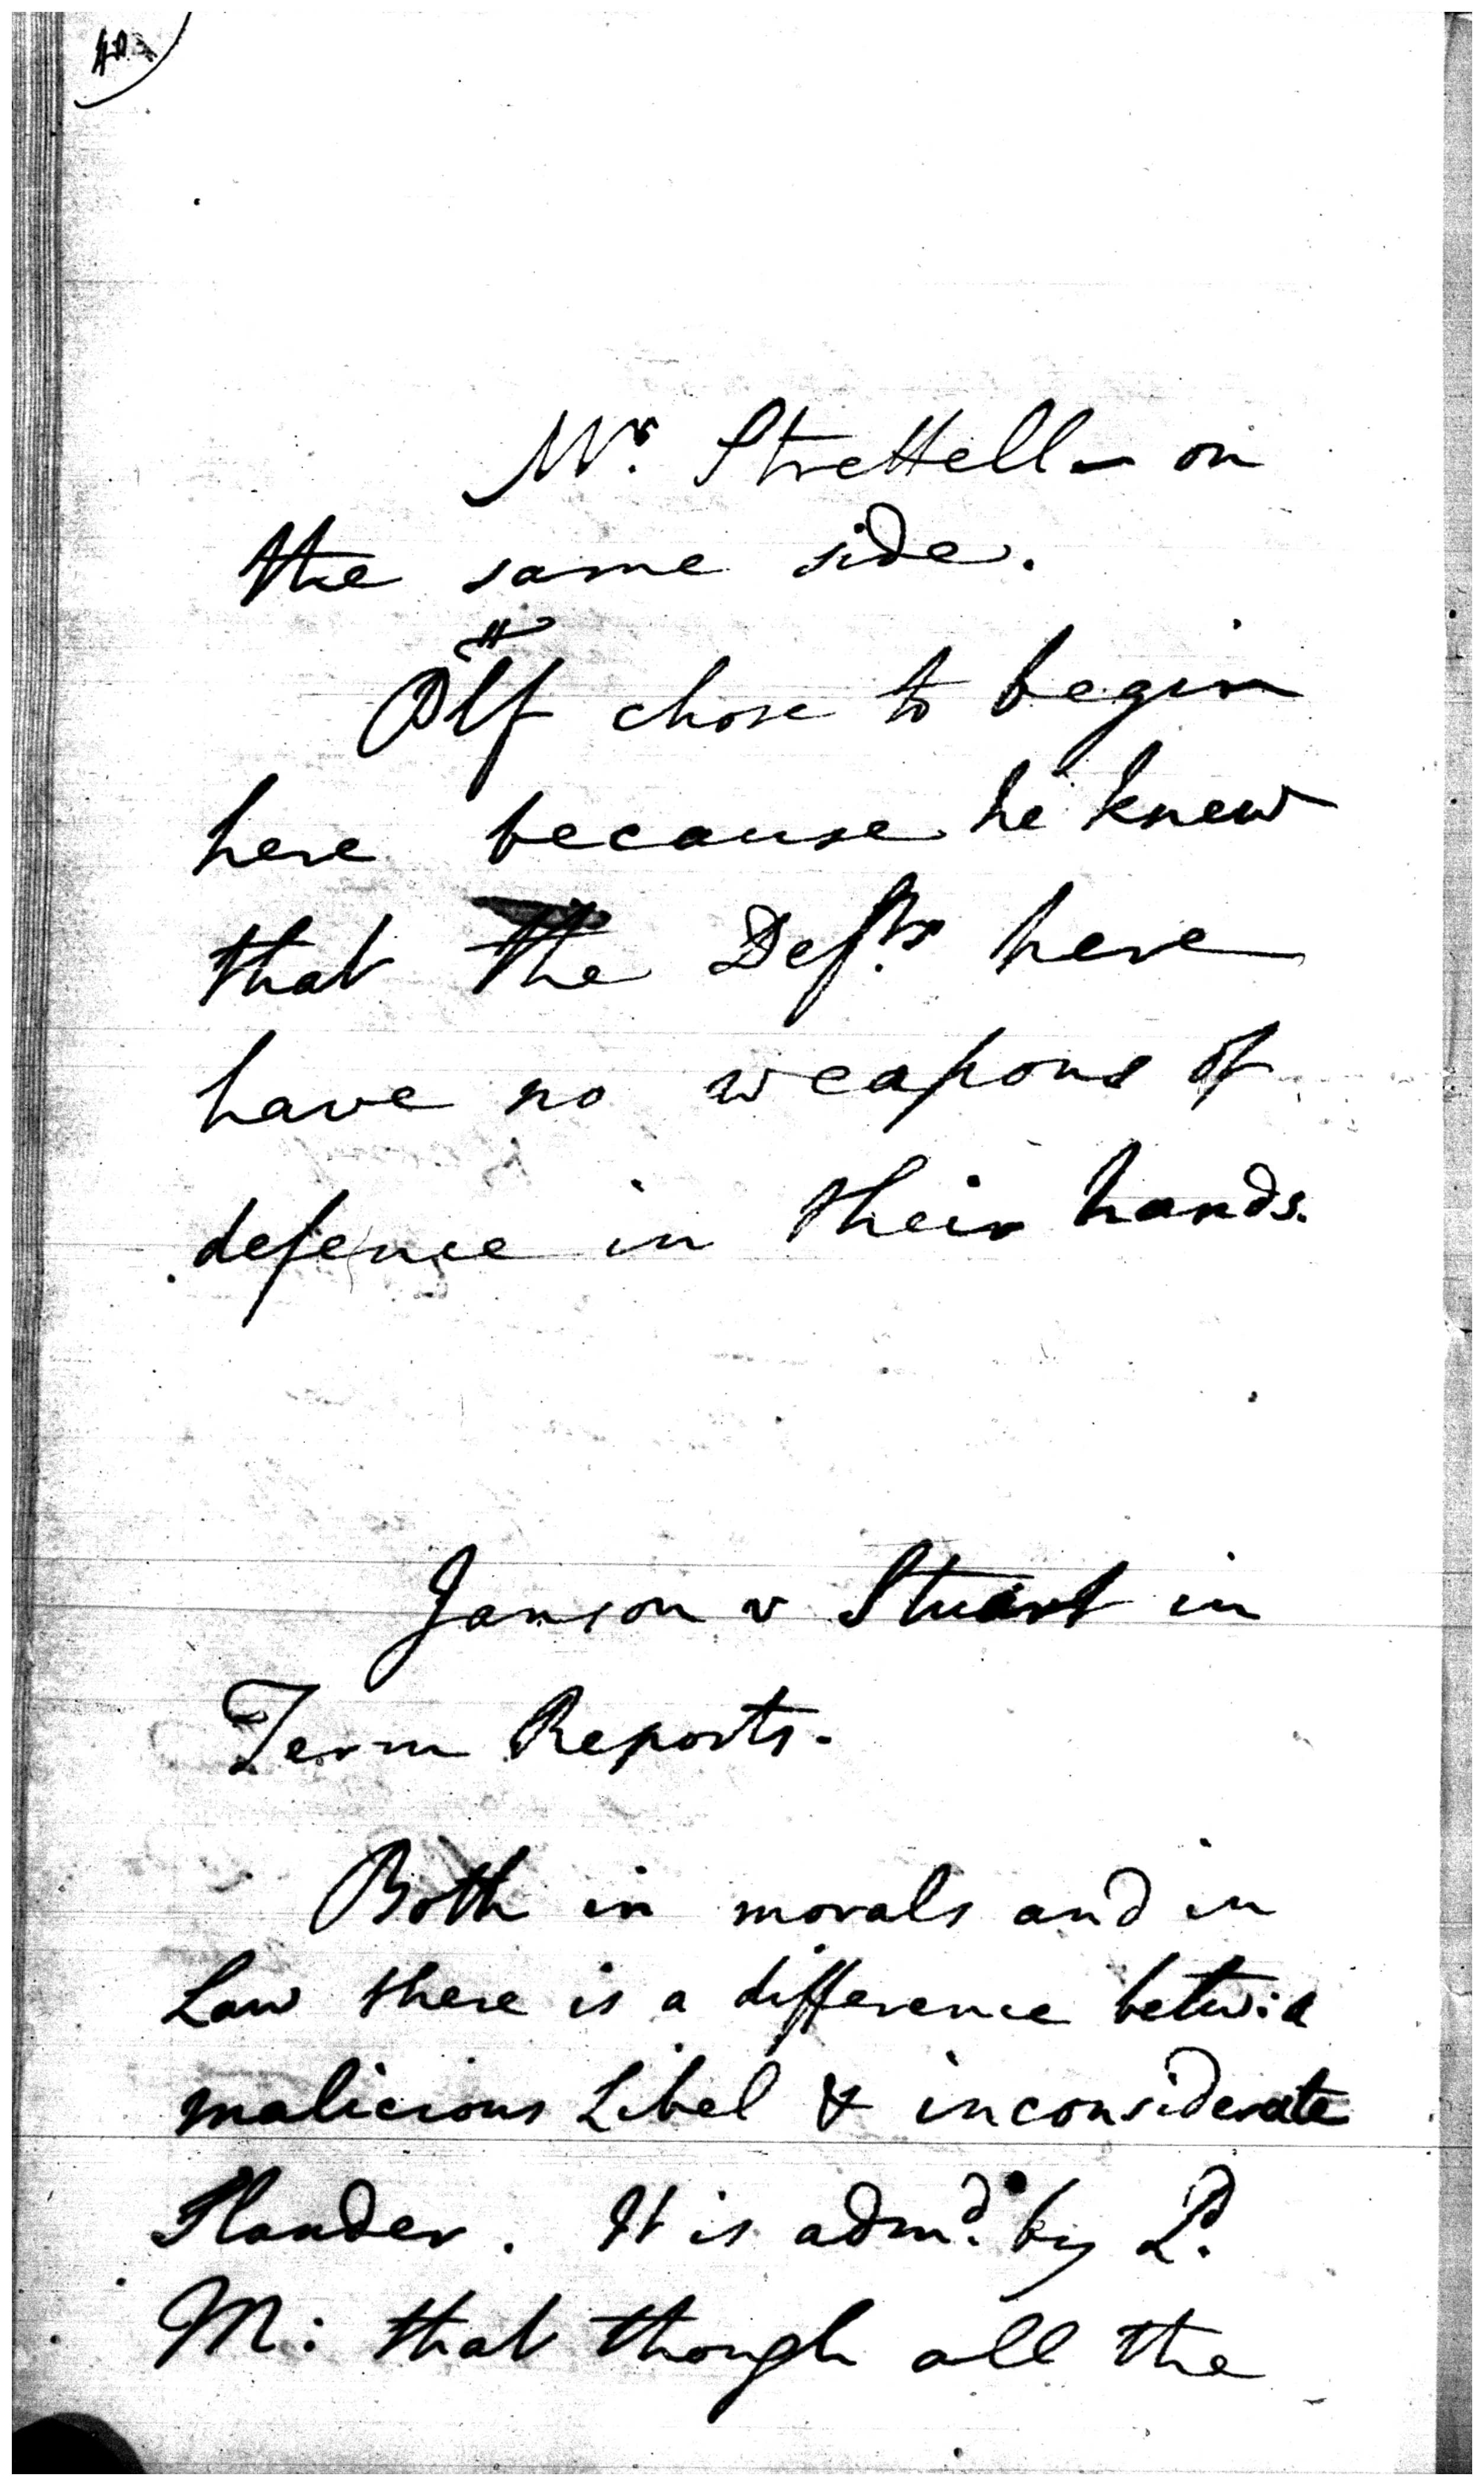 Mr. Strettell – on
the same side.
Pltff chose to begin
here because he knew
that the Defts. here
have no weapons of
defence in their hands.
Janson v Stuart in
Term Reports.
Both in morals and in
Law there is a difference betw: a
malicious Libel & inconsiderate
Slander. It is admd. by Ld.
M: that though all the